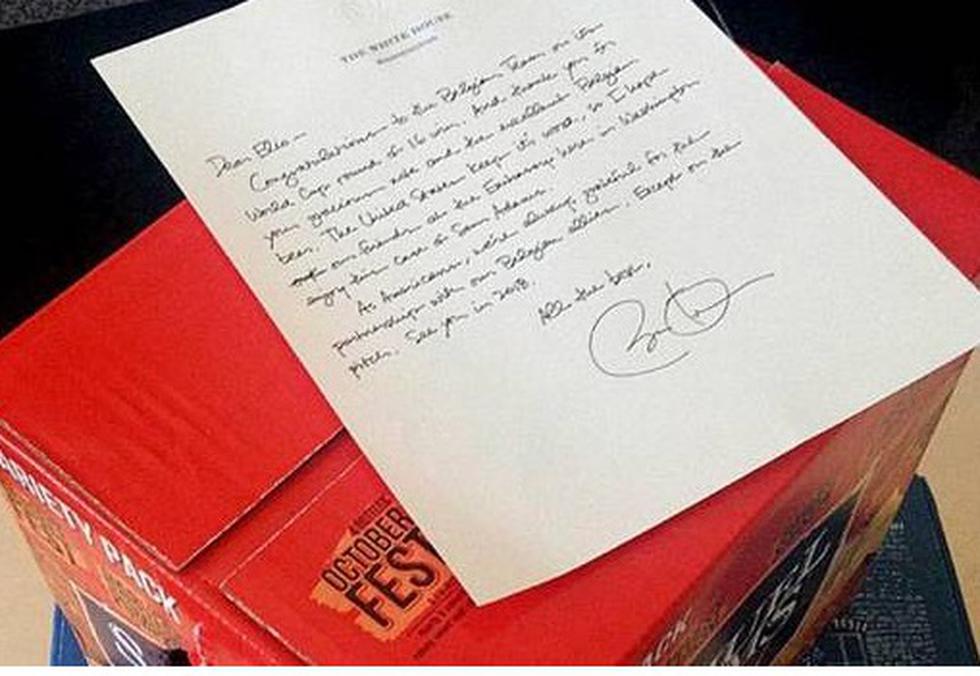 THE WHITE HOUSE
WASHINGTON
Dear Elio —
Congratulations to the Belgian Team on its
World Cup round of 16 win. And thank you for
your gracious note and the excellent Belgian
beer. The United States keeps it's word, so I hope
our friends at the Embassy here in Washington
enjoy this case of Sam Adams.
As Americans, we're always grateful for the
partnership with our Belgian allies. Except on the
pitch. See you in 2018.
All the best,
OCTOBER
FEST
VARIETY PACK